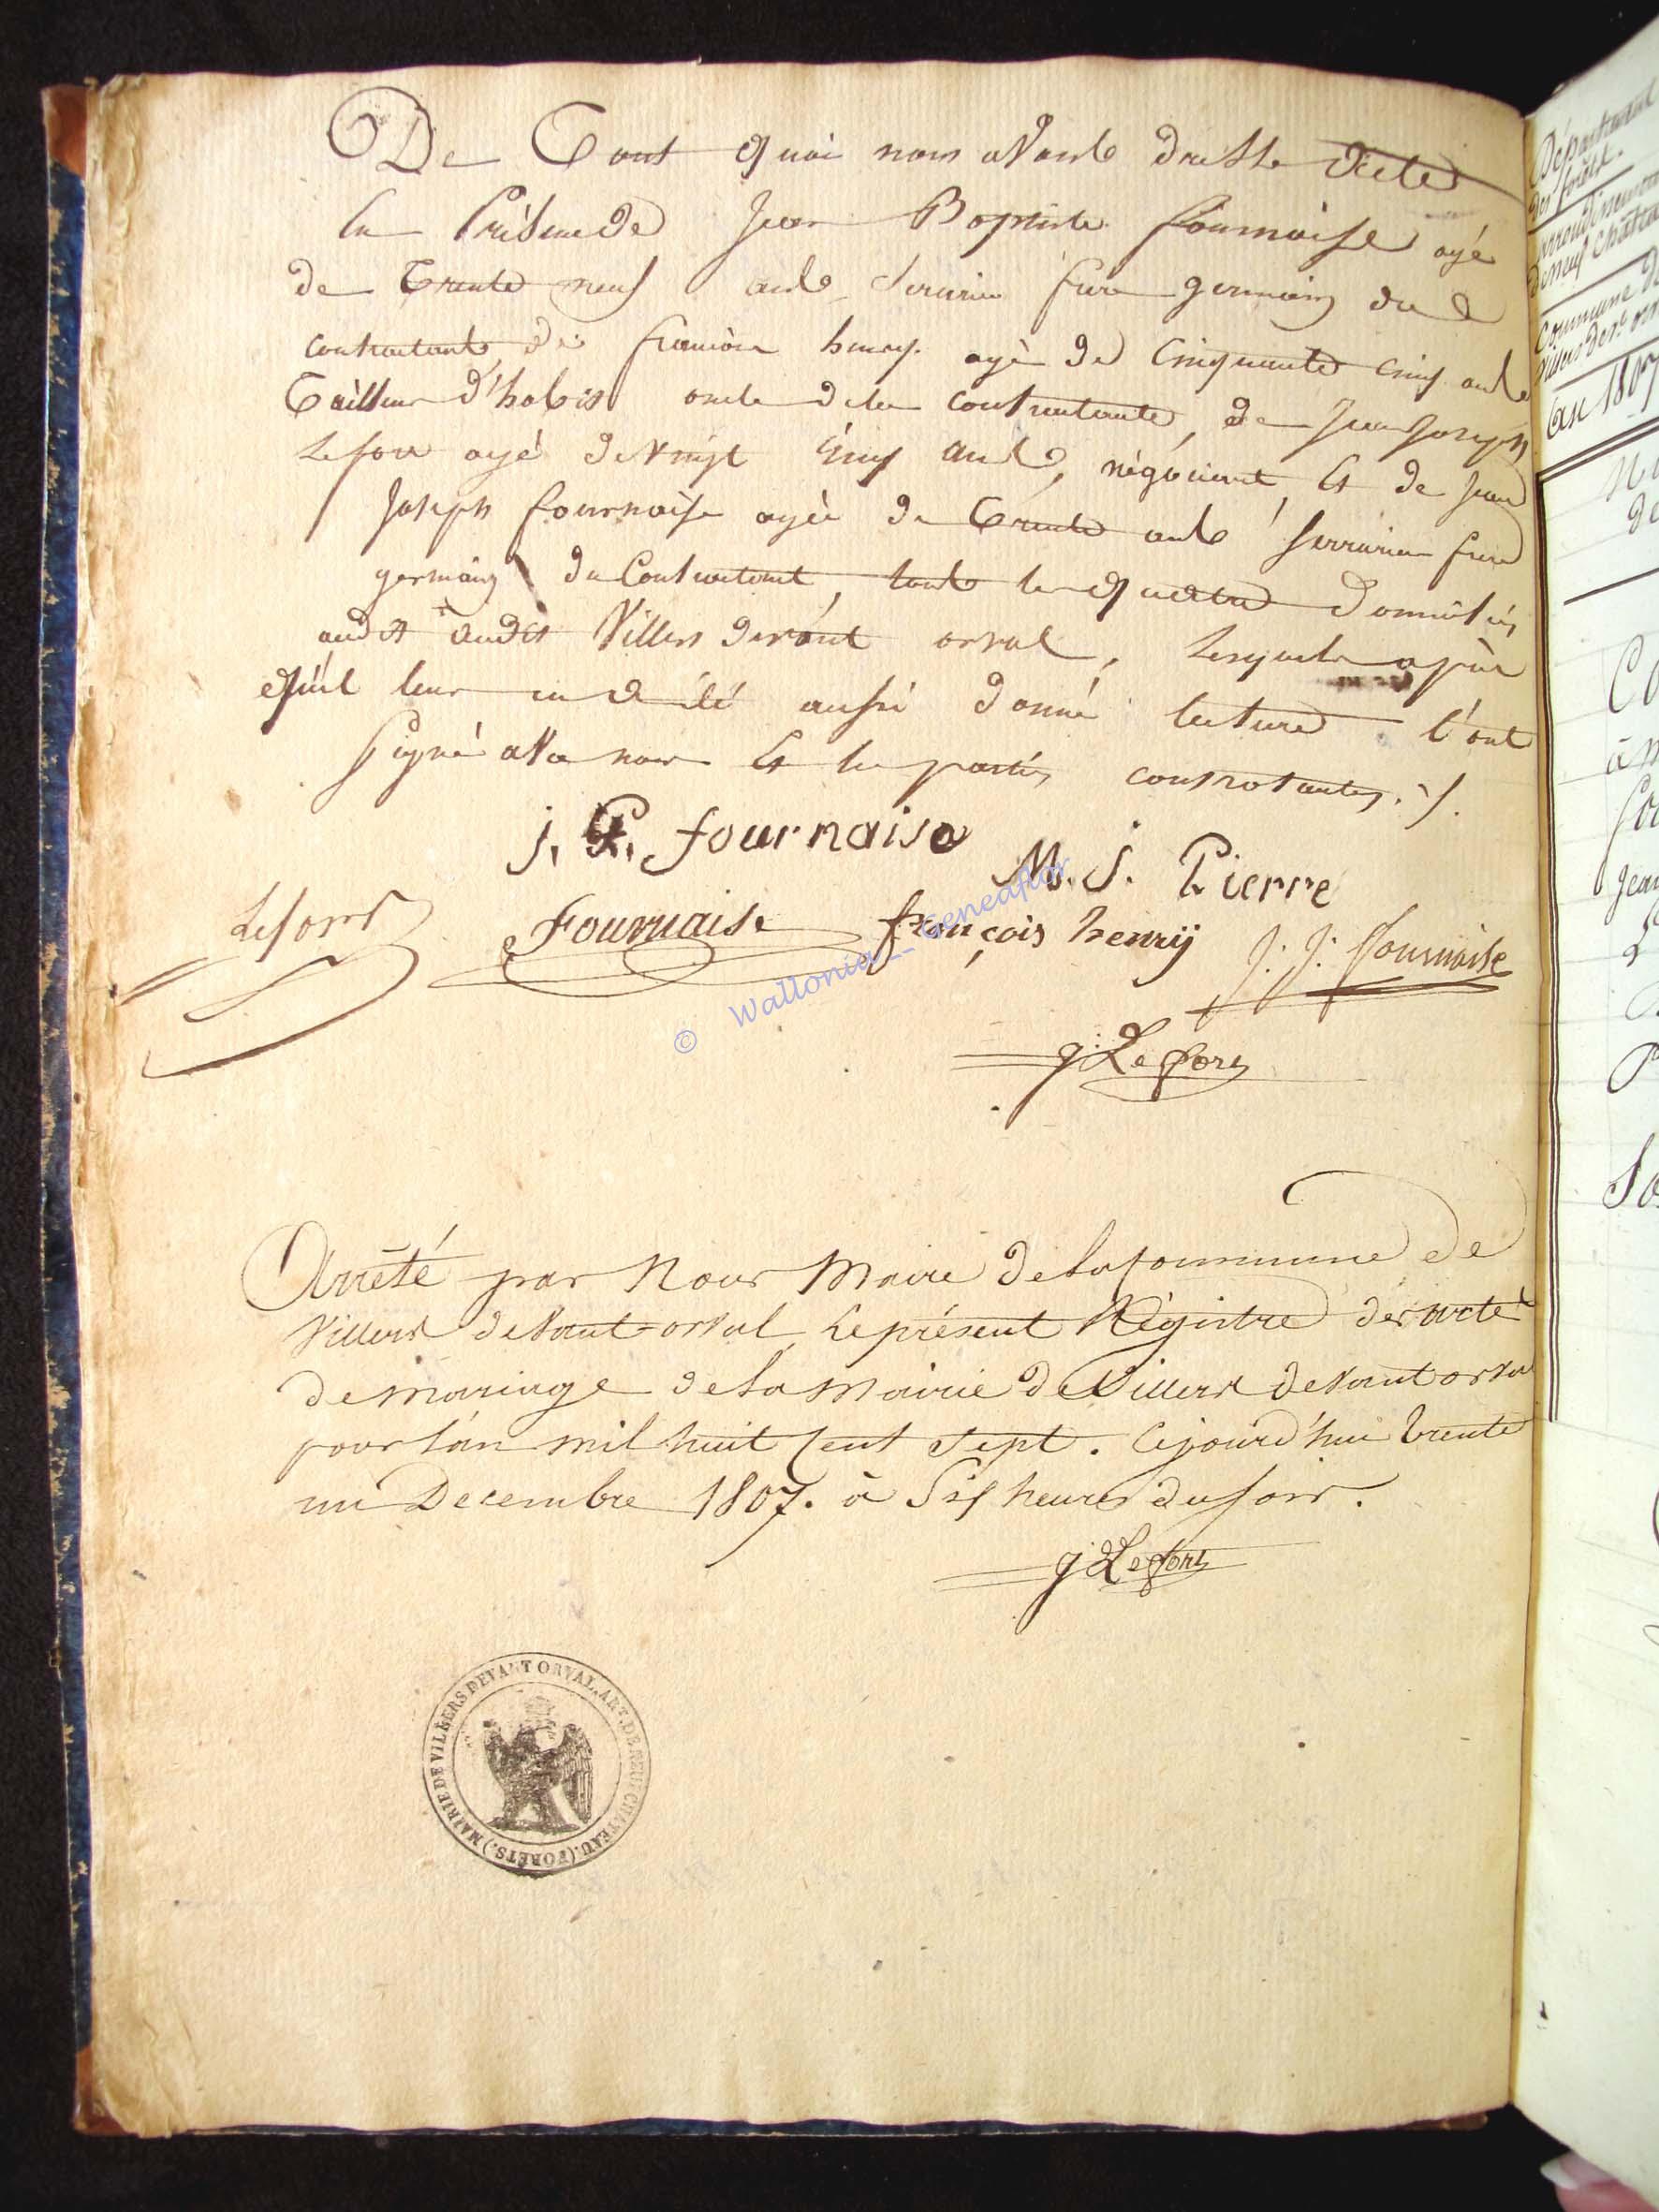 De Tout quoi nous avons dressé acte
En Présence de Jean Baptiste fournaise agé
de Trente neuf ans Serurier frere germain du
contractant, de francois henry agé de Cinquante cinq ans
Tailleur d'habis oncle de la contractante, de Jean Joseph
Lefort agé de vingt cinq ans, négociant, et de Jean
Joseph fournaise agée de Trente ans serrurier frere
germain du Contractant, tous les quatre domiciliés
audit audit Villers devant orval, Lesquels après
qu'il leur en a été aussi donné lecture l'ont
signé avec nous et les parties contractantes ./.
j. P. fournaise
M. J. Pierre
Lefort Fournaise françois henrij J: J: fournaise
g: Lefort
© Wallonia - Geneaflor
Arrêté par Nous Maire de la Commune de
Villers devant orval Le présent Régistre des acte
de mariage de la Mairie de Villers devant orval
pour l'an mil huit Cent Sept. Cejourd'hui trente
un Decembre 1807. à Six heures du soir.
g Lefort
MAIRIE DE VILLERS DEVANT ORVAL, ART. DE NEUFCHATEAU, (FORÊTS.)
Département
des forêts.
arrondissement
de neuf château
Commune de
Villers devt. or
an 1807